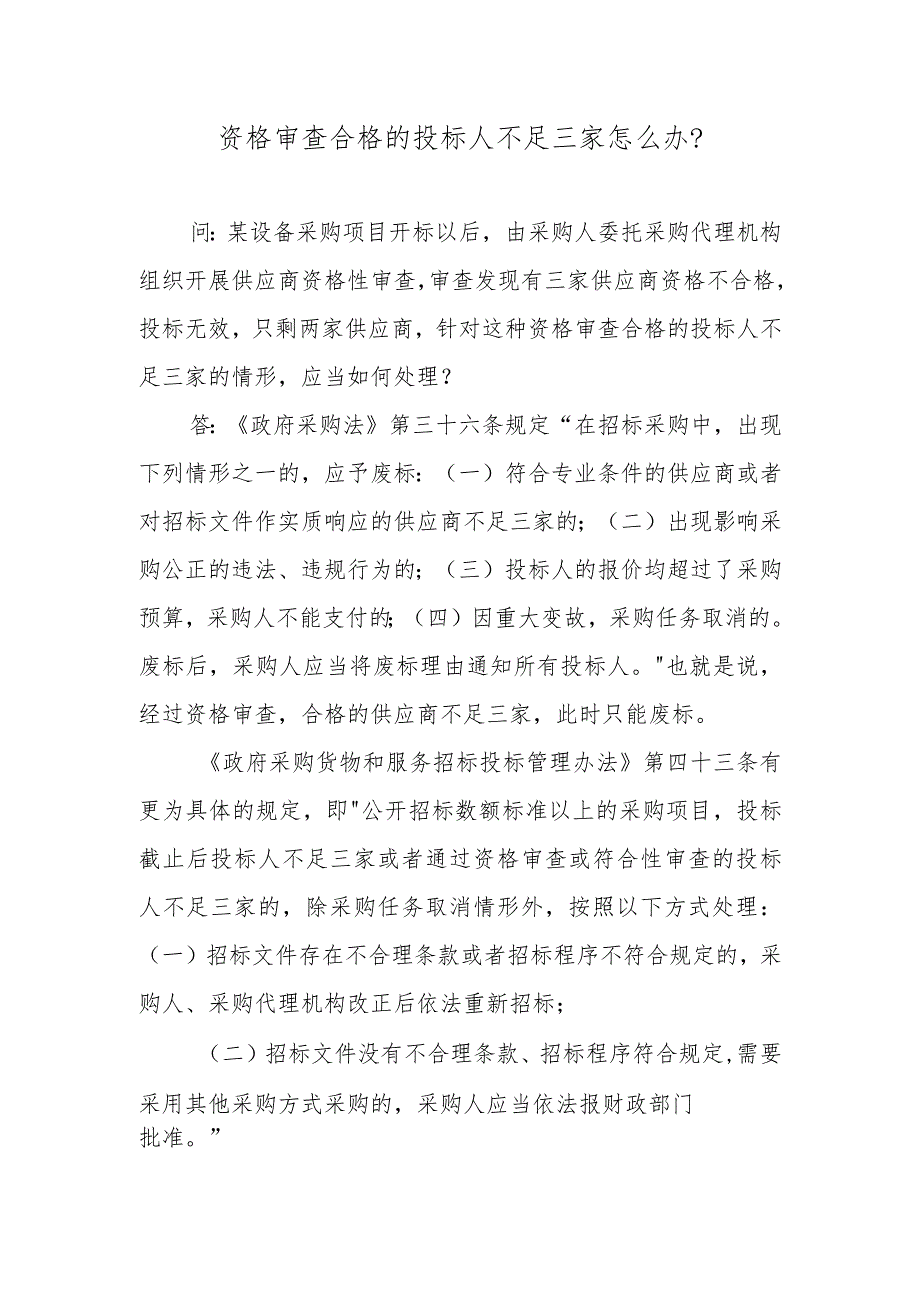 资格审查合格的投标人不足三家怎么办?
问:某设备采购项目开标以后，由采购人委托采购代理机构
组织开展供应商资格性审查,审查发现有三家供应商资格不合格,
投标无效，只剩两家供应商，针对这种资格审查合格的投标人不
足三家的情形，应当如何处理?
答:《政府采购法》第三十六条规定“在招标采购中，出现
下列情形之一的，应予废标:（一）符合专业条件的供应商或者
对招标文件作实质响应的供应商不足三家的;（二）出现影响采
购公正的违法、违规行为的;（三）投标人的报价均超过了采购
预算，采购人不能支付的;（四）因重大变故，采购任务取消的。
废标后，采购人应当将废标理由通知所有投标人。"也就是说，
经过资格审查，合格的供应商不足三家，此时只能废标。
《政府采购货物和服务招标投标管理办法》第四十三条有
更为具体的规定，即"公开招标数额标准以上的采购项目，投标
截止后投标人不足三家或者通过资格审查或符合性审查的投标
人不足三家的，除采购任务取消情形外，按照以下方式处理:
（一）招标文件存在不合理条款或者招标程序不符合规定的，采
购人、采购代理机构改正后依法重新招标;
（二）招标文件没有不合理条款、招标程序符合规定,需要
采用其他采购方式采购的，采购人应当依法报财政部门
批准。”